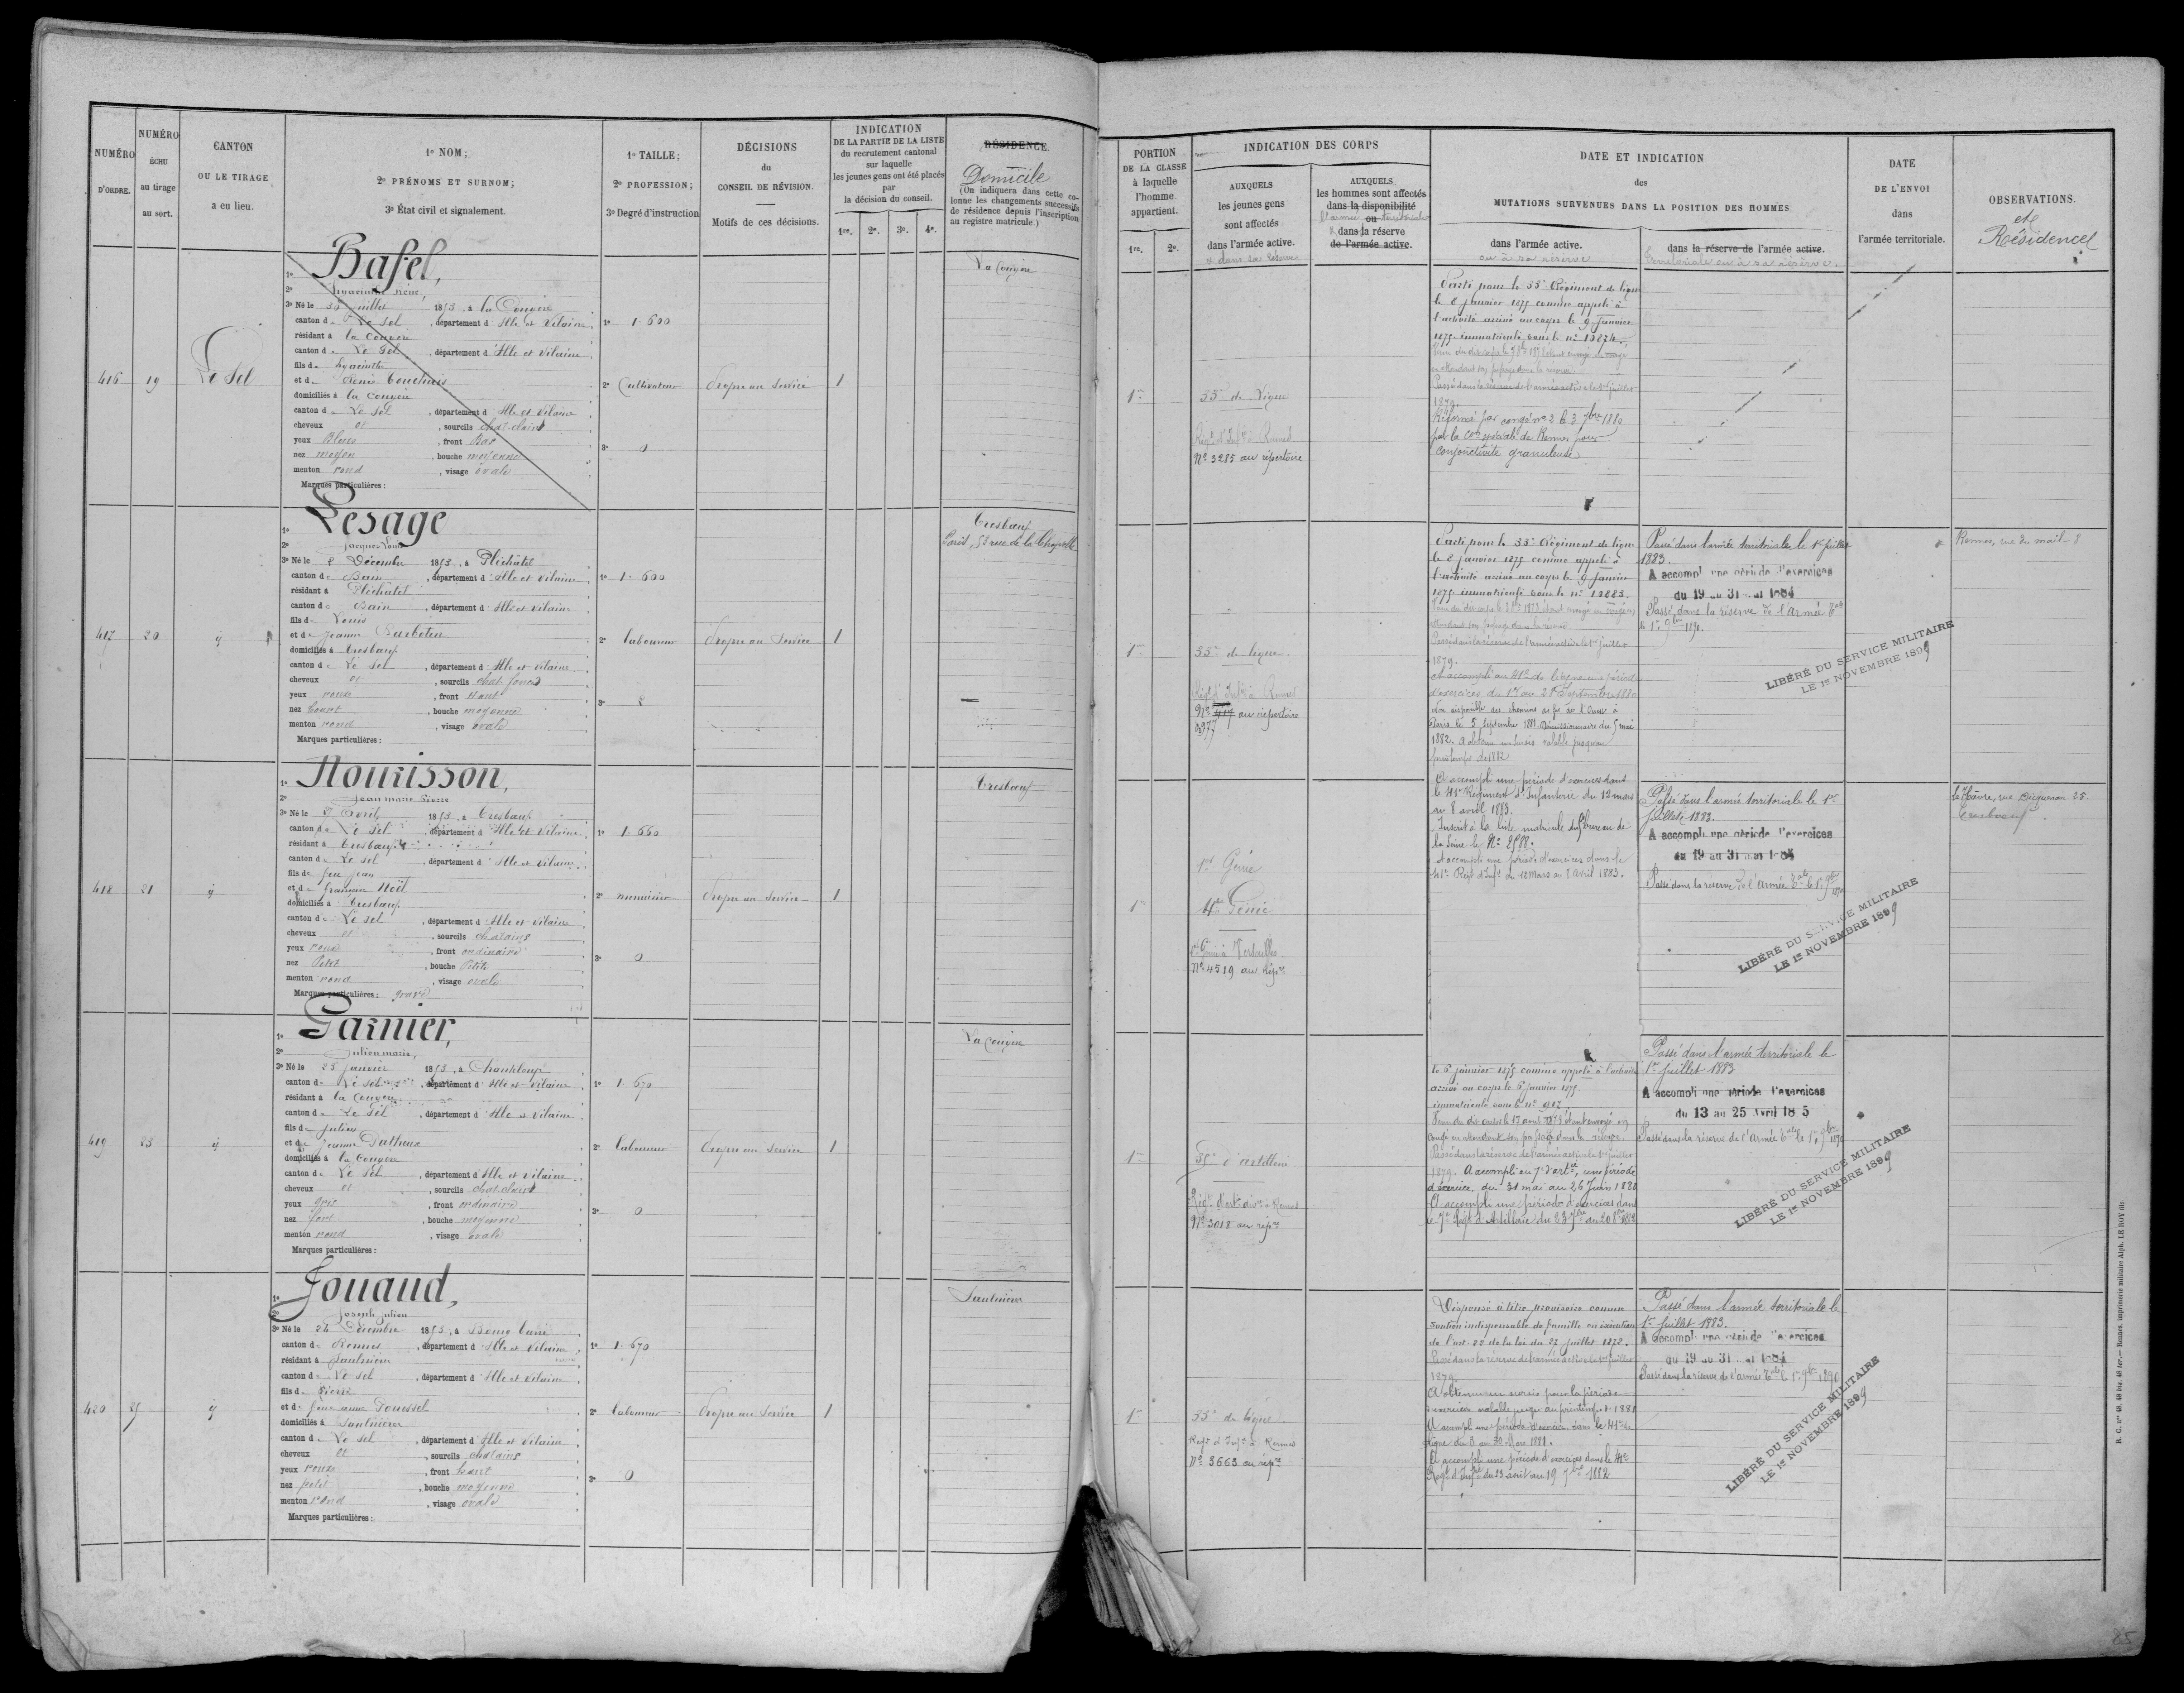 NUMÉRO
D'ORDRE.
NUMÉRO
ÉCHU
au tirage
au sort.
CANTON
OU LE TIRAGE
a eu lieu.
1º NOM;
2º PRÉNOMS ET SURNOM;
3º État civil et signalement.
1º TAILLE;
2º PROFESSION;
3º Degré d'instruction
DÉCISIONS
du
CONSEIL DE RÉVISION.
Motifs de ces décisions.
INDICATION
DE LA PARTIE DE LA LISTE
du recrutement cantonal
sur laquelle
les jeunes gens ont été placés
par
la décision du conseil.
1re. 2e. 3e. 4e.
RÉSIDENCE.
Domicile
(On indiquera dans cette co-
lonne les changements successifs
de résidence depuis l'inscription
au registre matricule.)
PORTION
DE LA CLASSE
à laquelle
l'homme
appartient.
1re. 2e.
INDICATION DES CORPS
AUXQUELS
les jeunes gens
sont affectés
dans l'armée active.
& dans sa réserve
AUXQUELS
les hommes sont affectés
dans la disponibilité
ou
l'armée territoriale
& dans sa réserve
de l'armée active.
DATE ET INDICATION
des
MUTATIONS SURVENUES DANS LA POSITION DES HOMMES
dans l'armée active.
ou à sa réserve
dans la réserve de l'armée active.
territoriale ou à sa réserve.
DATE
DE L'ENVOI
dans
l'armée territoriale.
OBSERVATIONS.
et
Résidence
416 19 Le Sel
1º Basel,
2º hyacinthe rené,
3º Né le 30 juillet 1853, à la Couyère
canton de Le Sel, département d'Ille et Vilaine,
résidant à la Couyère
canton de Le Sel, département d'Ille et Vilaine,
fils de hyacinthe
et de Renée Couchais
domiciliés à la Couyère
canton de Le Sel, département d'Ille et Vilaine
cheveux et, sourcils chat. clairs
yeux Bleus, front Bas
nez moyen, bouche moyenne
menton rond, visage ovale
Marques particulières :
1º 1.600
2º Cultivateur
3º 0
Propre au Service
1
La Couyère
1re
33e de Ligne
Régt d'Infie à Rennes
Nº 3285 au répertoire
Parti pour le 33e Régiment de ligne
le 8 janvier 1875 comme appelé à
l'activité arrivé au corps le 9 janvier
1875 immatriculé sous le nº 10874.
en attendant son passage dans la réserve
Passé dans la réserve de l'armée active le 1er juillet
1879.
Réformé par congé nº 2 le 3 7bre 1880
par la Con spéciale de Rennes pour
conjonctivite granuleuse
417 20 id
1º Lesage
2º jacques Louis
3º Né le 8 Décembre 1853, à Pléchâtel
canton de Bain, département d'Ille et Vilaine,
résidant à Pléchâtel
canton de Bain, département d'Ille et Vilaine
fils de Louis
et de jeanne Barbotin
domiciliés à Tresboeuf
canton de Le Sel, département d'Ille et Vilaine
cheveux et, sourcils chat. foncés
yeux roux, front Haut
nez Court, bouche moyenne
menton rond, visage ovale
Marques particulières :
1º 1.600
2º laboureur
3º 2
Propre au Service
1
Tresboeuf
Paris, 52 rue de la Chapelle
1re
33e de ligne.
Régt d'Infie à Rennes
Nº 417 au répertoire
6377
Parti pour le 33e Régiment de ligne
le 8 janvier 1875 comme appelé à
l'activité arrivé au corps le 9 janvier
1875 immatriculé sous le nº 10883.
attendant son passage dans la réserve
Passé dans la réserve de l'armée active le 1er juillet
1879.
A accompli au 41e de ligne une période
d'exercices du 1er au 28 Septembre 1880
Non disponible des chemins de fer de l'Ouest à
Paris le 5 septembre 1881. Démissionnaire du 5 mai
1882. A obtenu un sursis valable jusqu'au
printemps de 1882
Passé dans l'armée territoriale le 1er juillet
1883.
A accompli une période d'exercices
du 19 au 31 mai 1884
Passé dans la réserve de l'Armée tale
le 1er 9bre 1890.
LIBÉRÉ DU SERVICE MILITAIRE
LE 1er NOVEMBRE 1899
Rennes, rue du mail 8
418 21 id
1º Nourisson,
2º jean marie Pierre
3º Né le 7 avril 1853, à Tresboeuf
canton de Le Sel, département d'Ille et Vilaine,
résidant à Tresboeuf
canton de Le Sel, département d'Ille et Vilaine
fils de feu jean
et de françoise Noël
domiciliés à Tresboeuf
canton de Le Sel, département d'Ille et Vilaine
cheveux et, sourcils chatains
yeux roux, front ordinaire
nez Petit, bouche Petite
menton rond, visage ovale
Marques particulières : gravé
1º 1.660
2º menuisier
3º 0
Propre au Service
1
Tresboeuf
1re
1er Génie
4e Génie
1er Génie à Versailles
Nº 4519 au Répre
A accompli une période d'exercices dans
le 41e Régiment d'Infanterie du 12 mars
au 8 avril 1883.
Inscrit à la liste matricule du bureau de
la Seine le Nº 2588.
A accompli une période d'exercices dans le
41e Régt d'Infie du 12 Mars au 8 Avril 1883.
Passé dans l'armée territoriale le 1er
juillet 1883.
A accompli une période d'exercices
du 19 au 31 mai 1884
Passé dans la réserve de l'armée tale le 1er 9bre 1890
LIBÉRÉ DU SERVICE MILITAIRE
LE 1er NOVEMBRE 1899
Le Hâvre, rue Dicquemare 25
Tresboeuf
419 23 id
1º Garnier,
2º Julien marie,
3º Né le 25 janvier 1853, à Chanteloup
canton de Le Sel, département d'Ille et Vilaine
résidant à la Couyère
canton de Le Sel, département d'Ille et Vilaine
fils de julien
et de jeanne
domiciliés à la Couyère
canton de Le Sel, département d'Ille et Vilaine
cheveux et, sourcils chat. clairs
yeux gris, front ordinaire
nez fort, bouche moyenne
menton rond, visage ovale
Marques particulières :
1º 1.670
2º laboureur
3º 0
Propre au Service
1
La Couyère
1re
35e d'artillerie
Régt d'arte divre à Rennes
Nº 3018 au répre
le 6 janvier 1875 comme appelé à l'activité
arrivé au corps le 6 janvier 1875
immatriculé sous le nº 907.
congé en attendant son passage dans la réserve.
Passé dans la réserve de l'armée active le 1er juillet
1879. A accompli au 7e d'artie, une période
d'exercice, du 31 mai au 26 Juin 1880
A accompli une période d'exercices dans
le 7e Régt d'Artillerie du 23 7bre au 20 8bre 1882
Passé dans l'armée territoriale le
1er Juillet 1883
A accompli une période d'exercices
du 13 au 25 Avril 1885
Passé dans la réserve de l'Armée tale le 1er 9bre 1890
LIBÉRÉ DU SERVICE MILITAIRE
LE 1er NOVEMBRE 1899
420 25 id
1º Jouaud,
2º Joseph julien
3º Né le 24 Décembre 1853, à Bourg barré
canton de Rennes, département d'Ille et Vilaine
résidant à Saulnières
canton de Le Sel, département d'Ille et Vilaine
fils de Pierre
et de feue anne Douessel
domiciliés à Saulnières
canton de Le Sel, département d'Ille et Vilaine
cheveux et, sourcils chatains
yeux roux, front haut
nez petit, bouche moyenne
menton rond, visage ovale
Marques particulières :
1º 1.670
2º laboureur
3º 0
Propre au Service
1
Saulnières
1re
33e de ligne.
Régt d'Infie à Rennes
Nº 3663 au répre
Dispensé à titre provisoire comme
soutien indispensable de famille en exécution
de l'art. 22 de la loi du 27 juillet 1872.
Passé dans la réserve de l'armée active le 1er juillet
1879.
A obtenu un sursis pour la période
d'exercices valable jusqu'au printemps de 1881
A accompli une période d'exercices dans le 41e de
ligne du 3 au 30 Mars 1881.
A accompli une période d'exercices dans le 41e
Régt d'Infie du 23 août au 19 7bre 1882
Passé dans l'armée territoriale le
1er Juillet 1883.
A accompli une période d'exercices
du 19 au 31 mai 1884
Passé dans la réserve de l'armée tale le 1er 9bre 1890
LIBÉRÉ DU SERVICE MILITAIRE
LE 1er NOVEMBRE 1899
R. C. nos 48, 48 bis, 48 ter.— Rennes, imprimerie militaire Alph. LE ROY fils
85